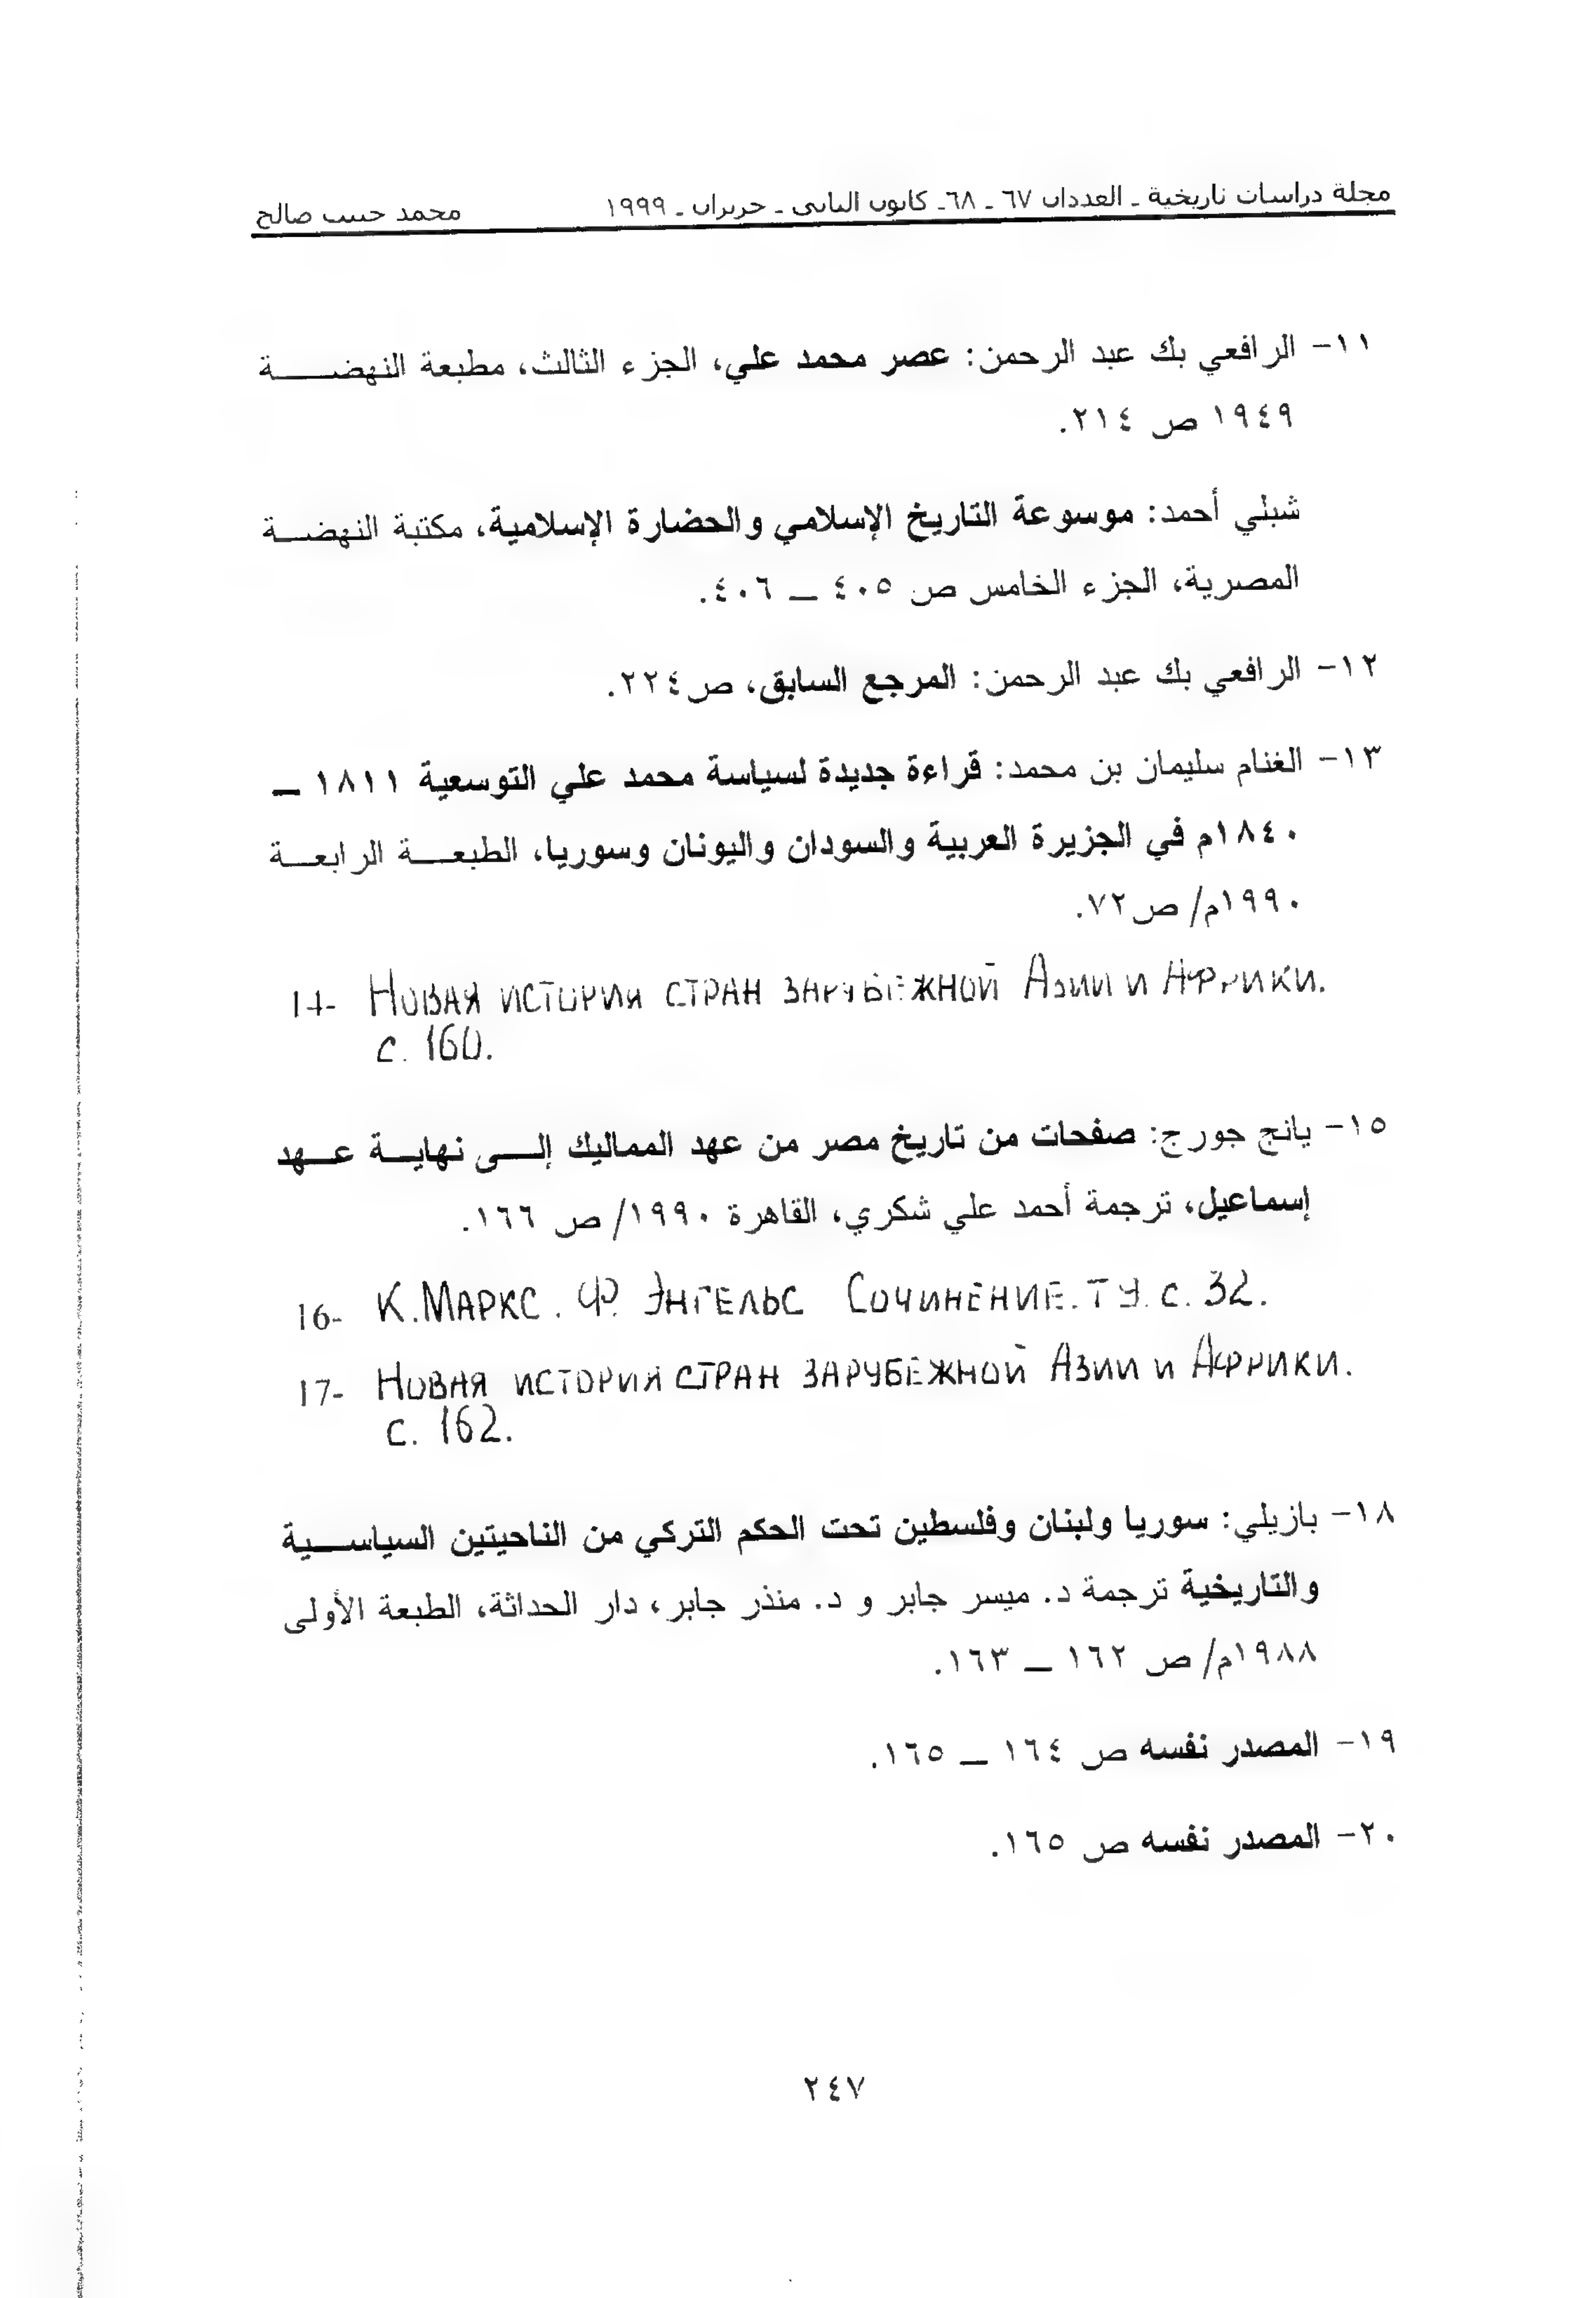 مجلة دراسات تاريخية ـ العددان ٦٧ ـ ٦٨ـ كانون الثاني ـ حزيران ـ ١٩٩٩ محمد حبيب صالح
١١- الرافعي بك عبد الرحمن: عصر محمد علي، الجزء الثالث، مطبعة النهضة
١٩٤٩ ص ٢١٤.
شبلي أحمد: موسوعة التاريخ الإسلامي والحضارة الإسلامية، مكتبة النهضة
المصرية، الجزء الخامس ص ٤٠٥ ــ ٤٠٦.
١٢- الرافعي بك عبد الرحمن: المرجع السابق، ص٢٢٤.
١٣- الغنام سليمان بن محمد: قراءة جديدة لسياسة محمد علي التوسعية ١٨١١ ــ
١٨٤٠م في الجزيرة العربية والسودان واليونان وسوريا، الطبعة الرابعة
١٩٩٠م/ ص٧٢.
14- Новая история стран зарубежной Азии и Африки.
с. 160.
١٥- يانج جورج: صفحات من تاريخ مصر من عهد المماليك إلى نهاية عهد
إسماعيل، ترجمة أحمد علي شكري، القاهرة ١٩٩٠/ ص ١٦٦.
16- К. Маркс. Ф. Энгельс Сочинение. т 9. с. 32.
17- Новая история стран зарубежной Азии и Африки.
с. 162.
١٨- بازيلي: سوريا ولبنان وفلسطين تحت الحكم التركي من الناحيتين السياسية
والتاريخية ترجمة د. ميسر جابر و د. منذر جابر، دار الحداثة، الطبعة الأولى
١٩٨٨م/ ص ١٦٢ ــ ١٦٣.
١٩- المصدر نفسه ص ١٦٤ ــ ١٦٥.
٢٠- المصدر نفسه ص ١٦٥.
٢٤٧